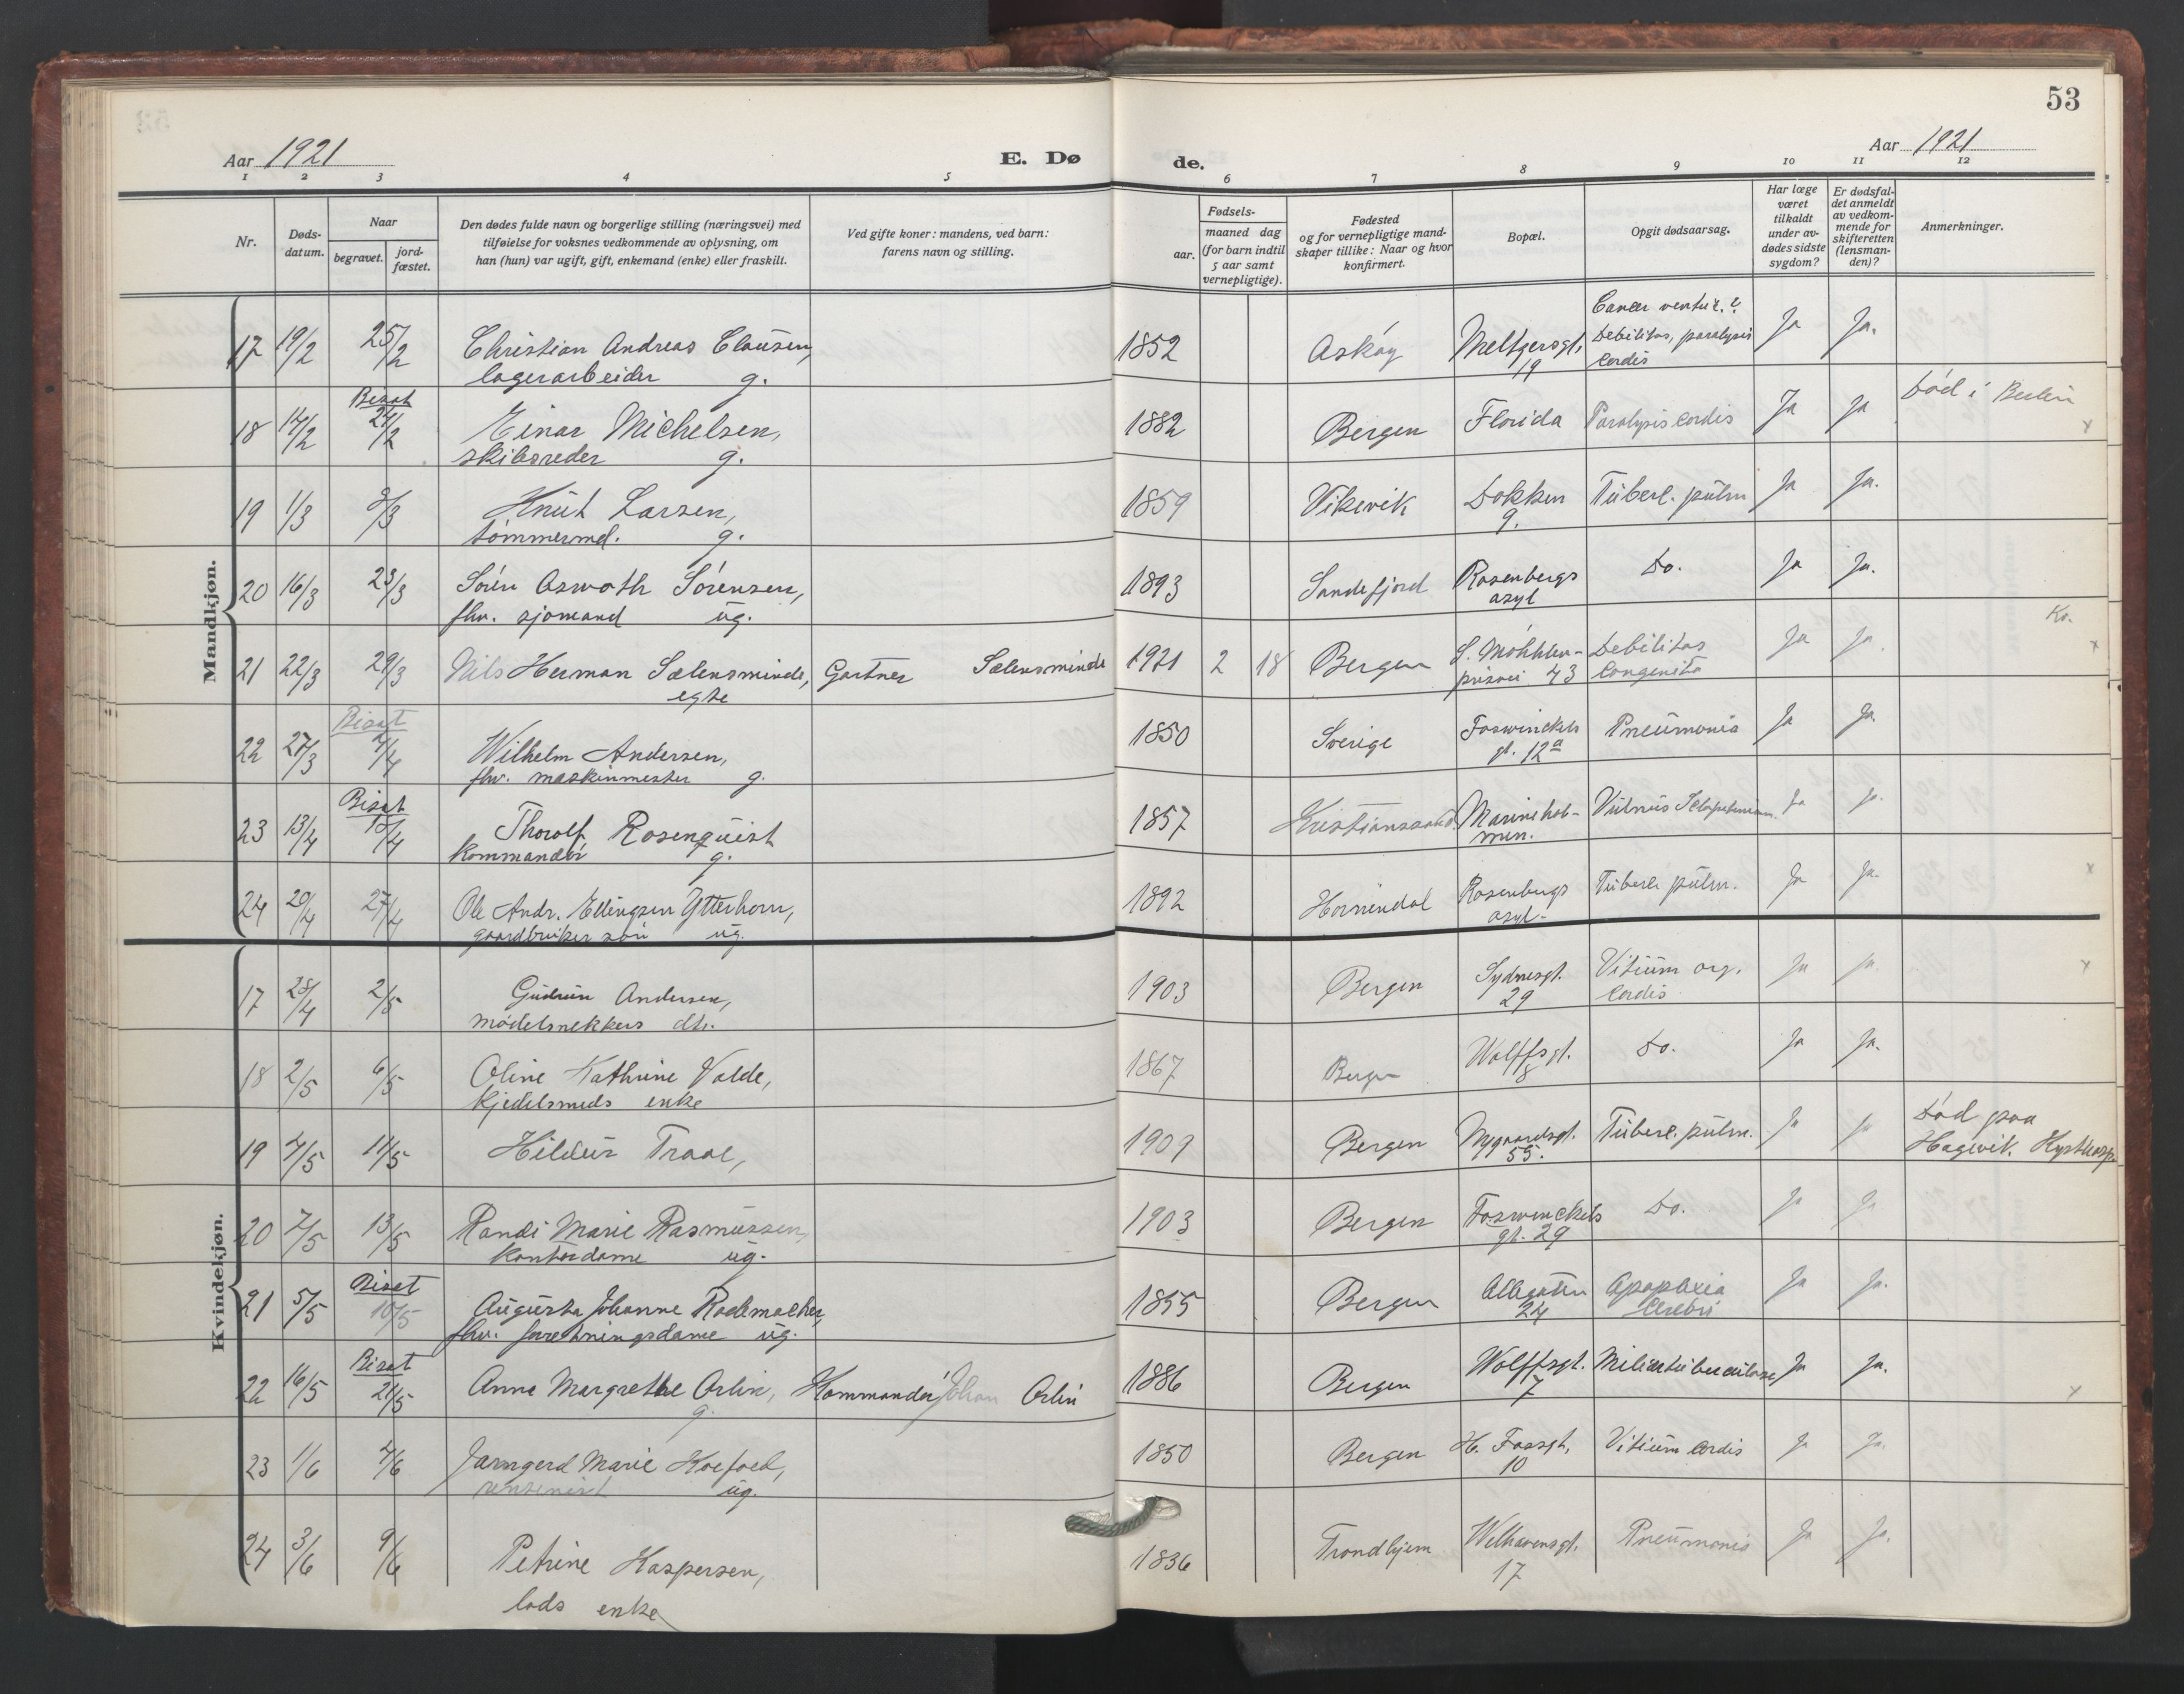 53
Aar 1921 E. Dø de. Aar 1921
1 2 3 4 5 6 7 8 9 10 11 12
Nr.
Døds-
datum.
Naar
begravet.
jord-
fæstet.
Den dødes fulde navn og borgerlige stilling (næringsvei) med
tilføielse for voksnes vedkommende av oplysning, om
han (hun) var ugift, gift, enkemand (enke) eller fraskilt.
Ved gifte koner: mandens, ved barn:
farens navn og stilling.
Fødsels-
aar.
maaned dag
(for barn indtil
5 aar samt
vernepligtige).
Fødested
og for vernepligtige mand-
skaper tillike: Naar og hvor
konfirmert.
Bopæl.
Opgit dødsaarsag.
Har læge
været
tilkaldt
under av-
dødes sidste
sygdom?
Er dødsfal-
det anmeldt
av vedkom-
mende for
skifteretten
(lensman-
den)?
Anmerkninger.
Mandkjøn.
17 19/2 25/2 Christian Andreas Clausen, 1852 Askøy Meltzersgt. Cancer ventric.? Ja Ja.
lagerarbeider g. 19 Debilitas, paralysis
cordis
Bisat
18 14/2 24/2 Einar Michelsen, 1882 Bergen Florida Paralysis cordis Ja Ja Død i Berlin
skibsreder g. x
19 1/3 8/3 Knut Larsen, 1859 Vikevik Dokken Tuberc. pulm Ja Ja.
tømmermd. g. 9.
20 16/3 23/3 Sørn Asworth Sørensen, 1893 Sandefjord Rosenbergs Do. Ja Ja.
fhv. sjømand ug. asyl
21 22/3 29/3 Nils Herman Sælensminde, Gartner Sælensminde 1921 2 18 Bergen S. Møhlen- Debilitas Ja Ja. Ko.
egte prisvei 43 congenita x
Bisat
22 27/3 4/4 Wilhelm Andersen, 1850 Sverige Foswinckels Pneumonia Ja Ja.
fhv. maskinmester g. gt. 12a
Bisat
23 13/4 18/4 Thorolf Rosenquist 1857 Kristianssand. Marinehol- Vulnus Ja Ja.
kommandør g. men.
24 20/4 27/4 Ole Andr. Ellingsen Ytterhorn, 1892 Hornindal Rosenbergs Tuberc. pulm. Ja Ja. x
gaardbruker søn ug. asyl-
Kvindekjøn.
17 28/4 2/5 Gudrun Andersen, 1903 Bergen Sydnesgt. Vitium org. Ja Ja x
modelsnekkers dtr. 29 cordis
18 2/5 6/5 Oline Kathrine Valde, 1867 Bergen Wolffsgt. Do. Ja Ja.
kjedelsmeds enke 8
19 4/5 11/5 Hildur Traae, 1909 Bergen Nygaardsgt. Tuberc. pulm. Ja Ja Død paa
55. Hagevik. Kysthosp.
20 7/5 13/5 Randi Marie Rasmussen, 1903 Bergen Foswinckels Do. Ja Ja
kontordame ug. gt. 29
Bisat
21 5/5 10/5 Augusta Johanne Rademacher, 1855 Bergen Allegaten Apoplexia Ja Ja.
fhv. forretningsdame ug. 24 cerebri
Bisat
22 16/5 21/5 Anna Margrethe Orlin, Kommandør Johan Orlin 1886 Bergen Wolffsgt. Miliærtuberculose, Ja Ja.
g. 7 x
23 1/6 4/6 Jarngerd Marie Koefoed, 1850 Bergen H. Fossgt. Vitium cordis Ja Ja.
rentenist ug. 10
24 3/6 9/6 Petrine Kaspersen, 1836 Trondhjem Welhavensgt. Pneumonia Ja Ja.
lods enke 17